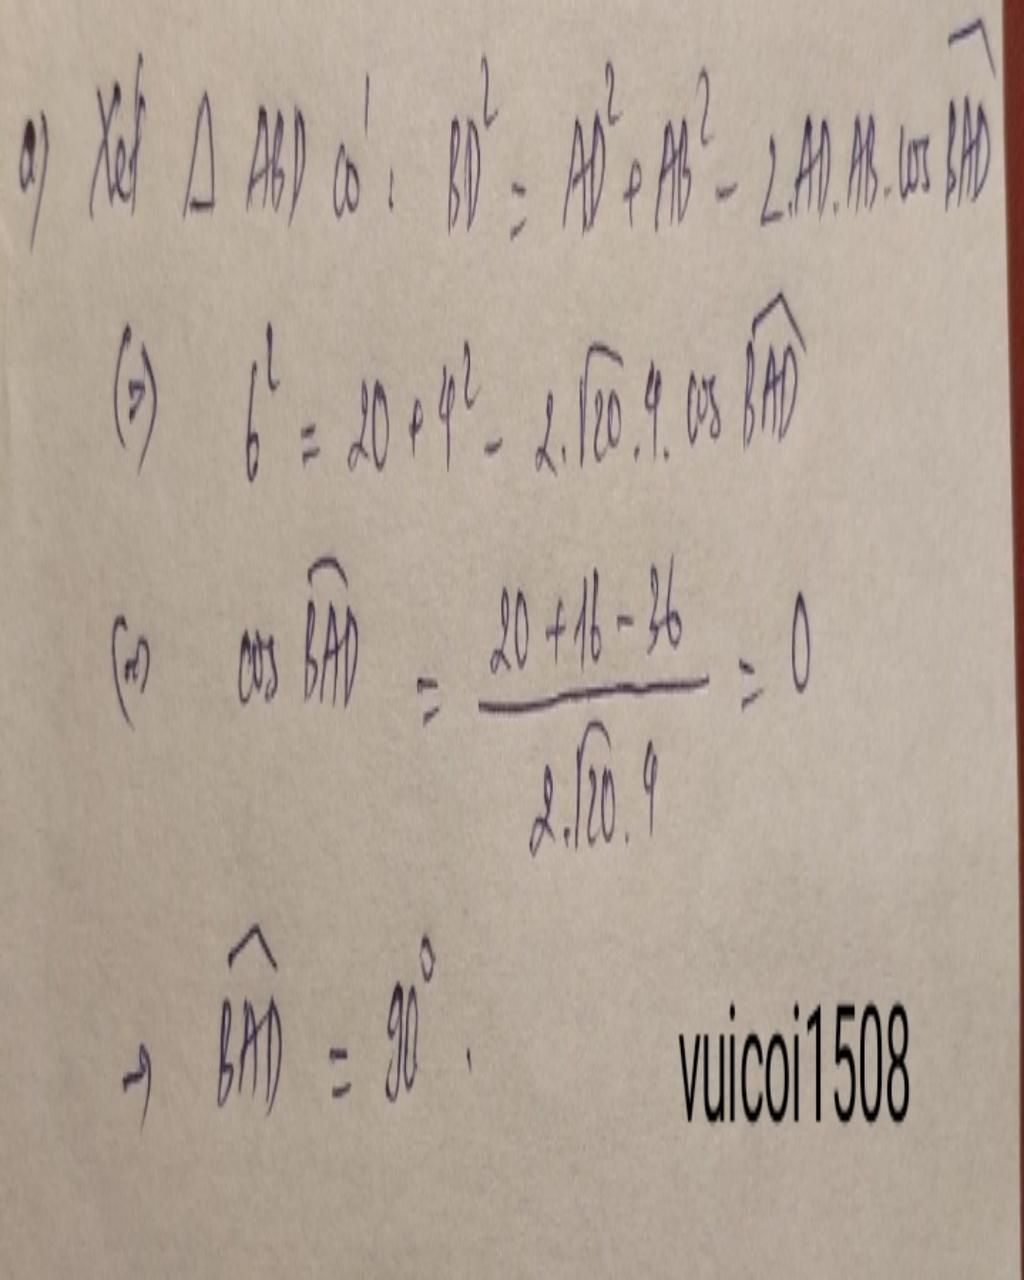 a) Xét Δ ABD có: BD² = AD² + AB² - 2.AD.AB.cos \widehat{BAD}
(=) 6² = 20 + 4² - 2.√20.4.cos \widehat{BAD}
(=) cos \widehat{BAD} = \frac{20 + 16 - 36}{2.√20.4} = 0
→ \widehat{BAD} = 90⁰.
vuicoi1508